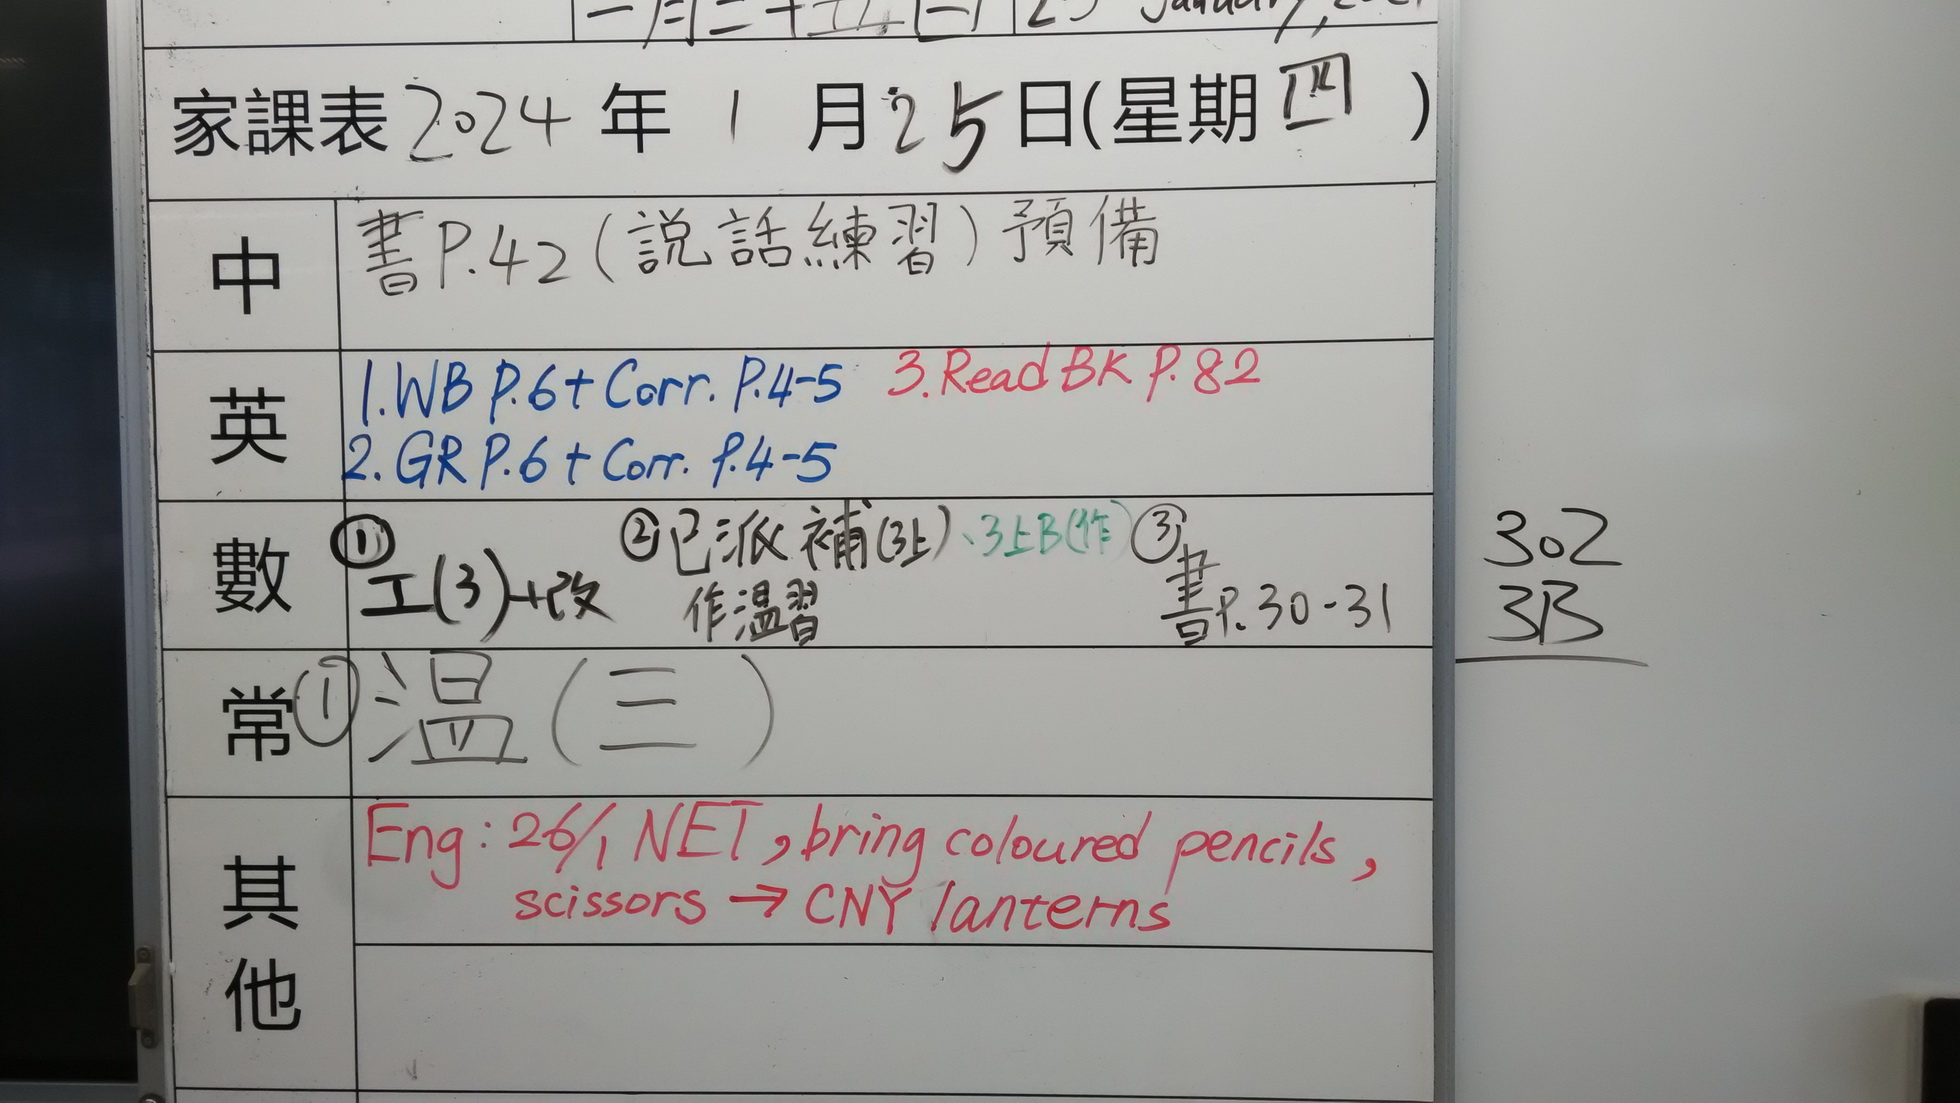 一月二十五日 25 January, 2024
家課表 2024 年 1 月 25 日(星期 四 )
中 書P.42(説話練習)預備
英 1.WB P.6+ Corr. P.4-5 3.Read BK P.82
2.GR P.6+ Corr. P.4-5
數 ①工(3)+改 ②已派補(3上)、3上B(作) ③書P.30-31
作温習
常 ①温(三)
其他 Eng: 26/1 NET, bring coloured pencils,
scissors → CNY lanterns
302
3B